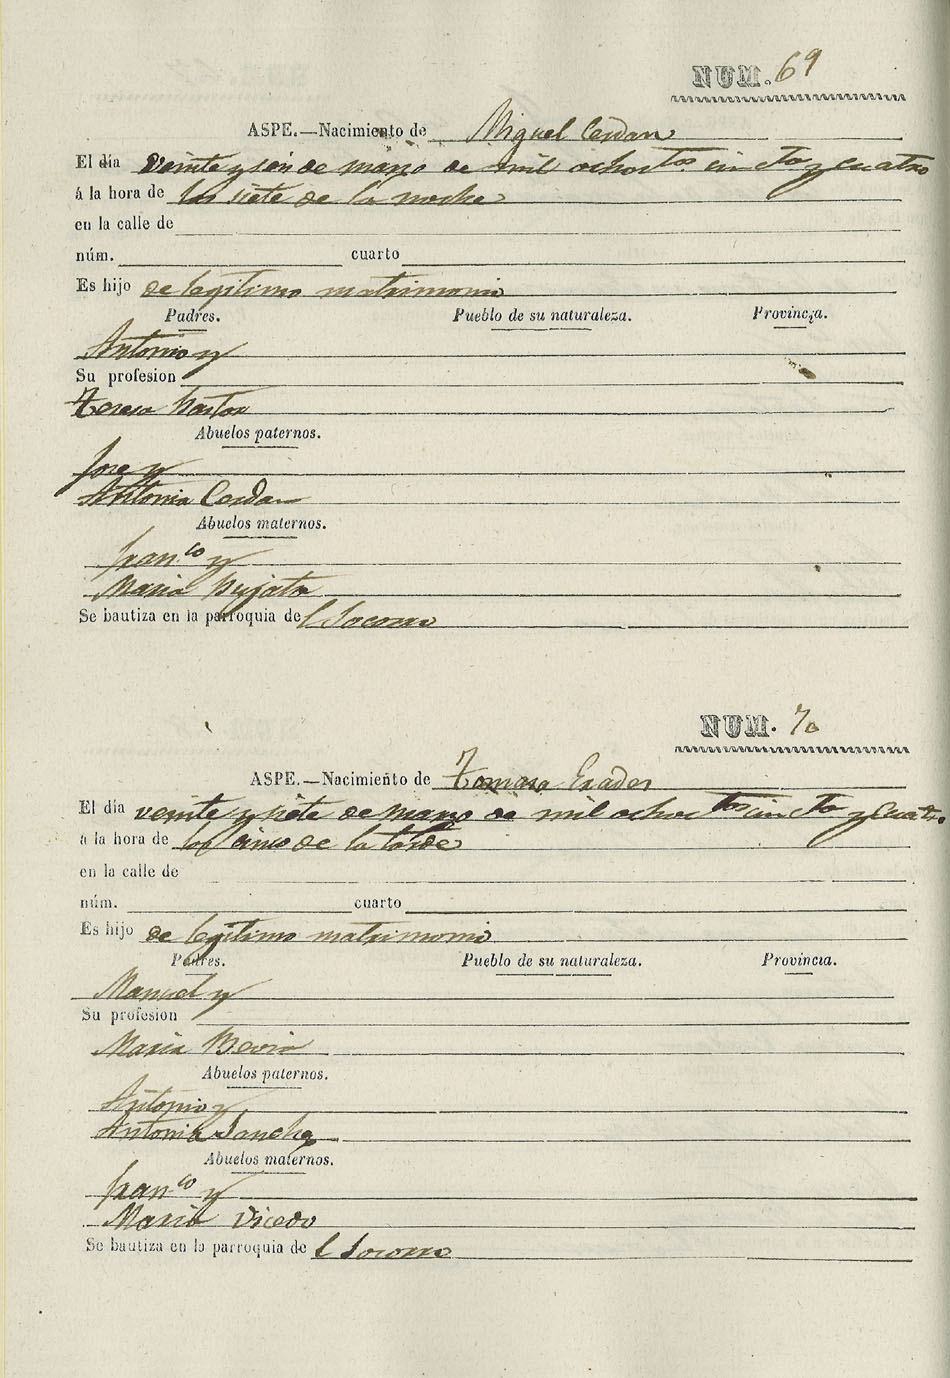 NUM. 69
ASPE.—Nacimiento de Miguel Cerdan
El día veinte y seis de marzo de mil ochos.tos cin.ta y cuatro
á la hora de las siete de la noche
en la calle de
núm. cuarto
Es hijo de legitimo matrimonio
Padres. Pueblo de su naturaleza. Provincia.
Antonio y
Su profesion
Teresa Pastor
Abuelos paternos.
Jose y
Antonia Cerdan
Abuelos maternos.
Fran.co y
Maria
Se bautiza en la parroquia del Socorro
NUM. 70
ASPE.—Nacimiento de Tomasa
El día veinte y siete de marzo de mil ochoc.tos cin.ta y cuatro
á la hora de las cinco de la tarde
en la calle de
núm. cuarto
Es hijo de legitimo matrimonio
Padres. Pueblo de su naturaleza. Provincia.
Manuel y
Su profesion
Maria
Abuelos paternos.
Antonio y
Antonia Sanchez
Abuelos maternos.
Fran.co y
Maria Vicedo
Se bautiza en la parroquia de l Socorro